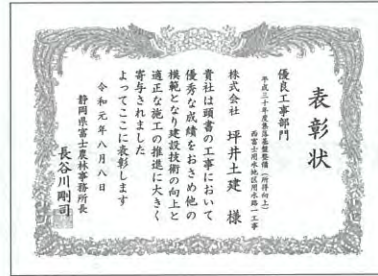 表彰状
優良工事部門
平成三十年度集落基盤整備(所得向上)
西富士用水地区用水路一工事
株式会社 坪井土建 様
貴社は頭書の工事において
優秀な成績をおさめ他の
模範となり建設技術の向上と
適正な施工の推進に大きく
寄与されました
よってここに表彰します
令和元年八月八日
静岡県富士農林事務所長
長谷川剛司